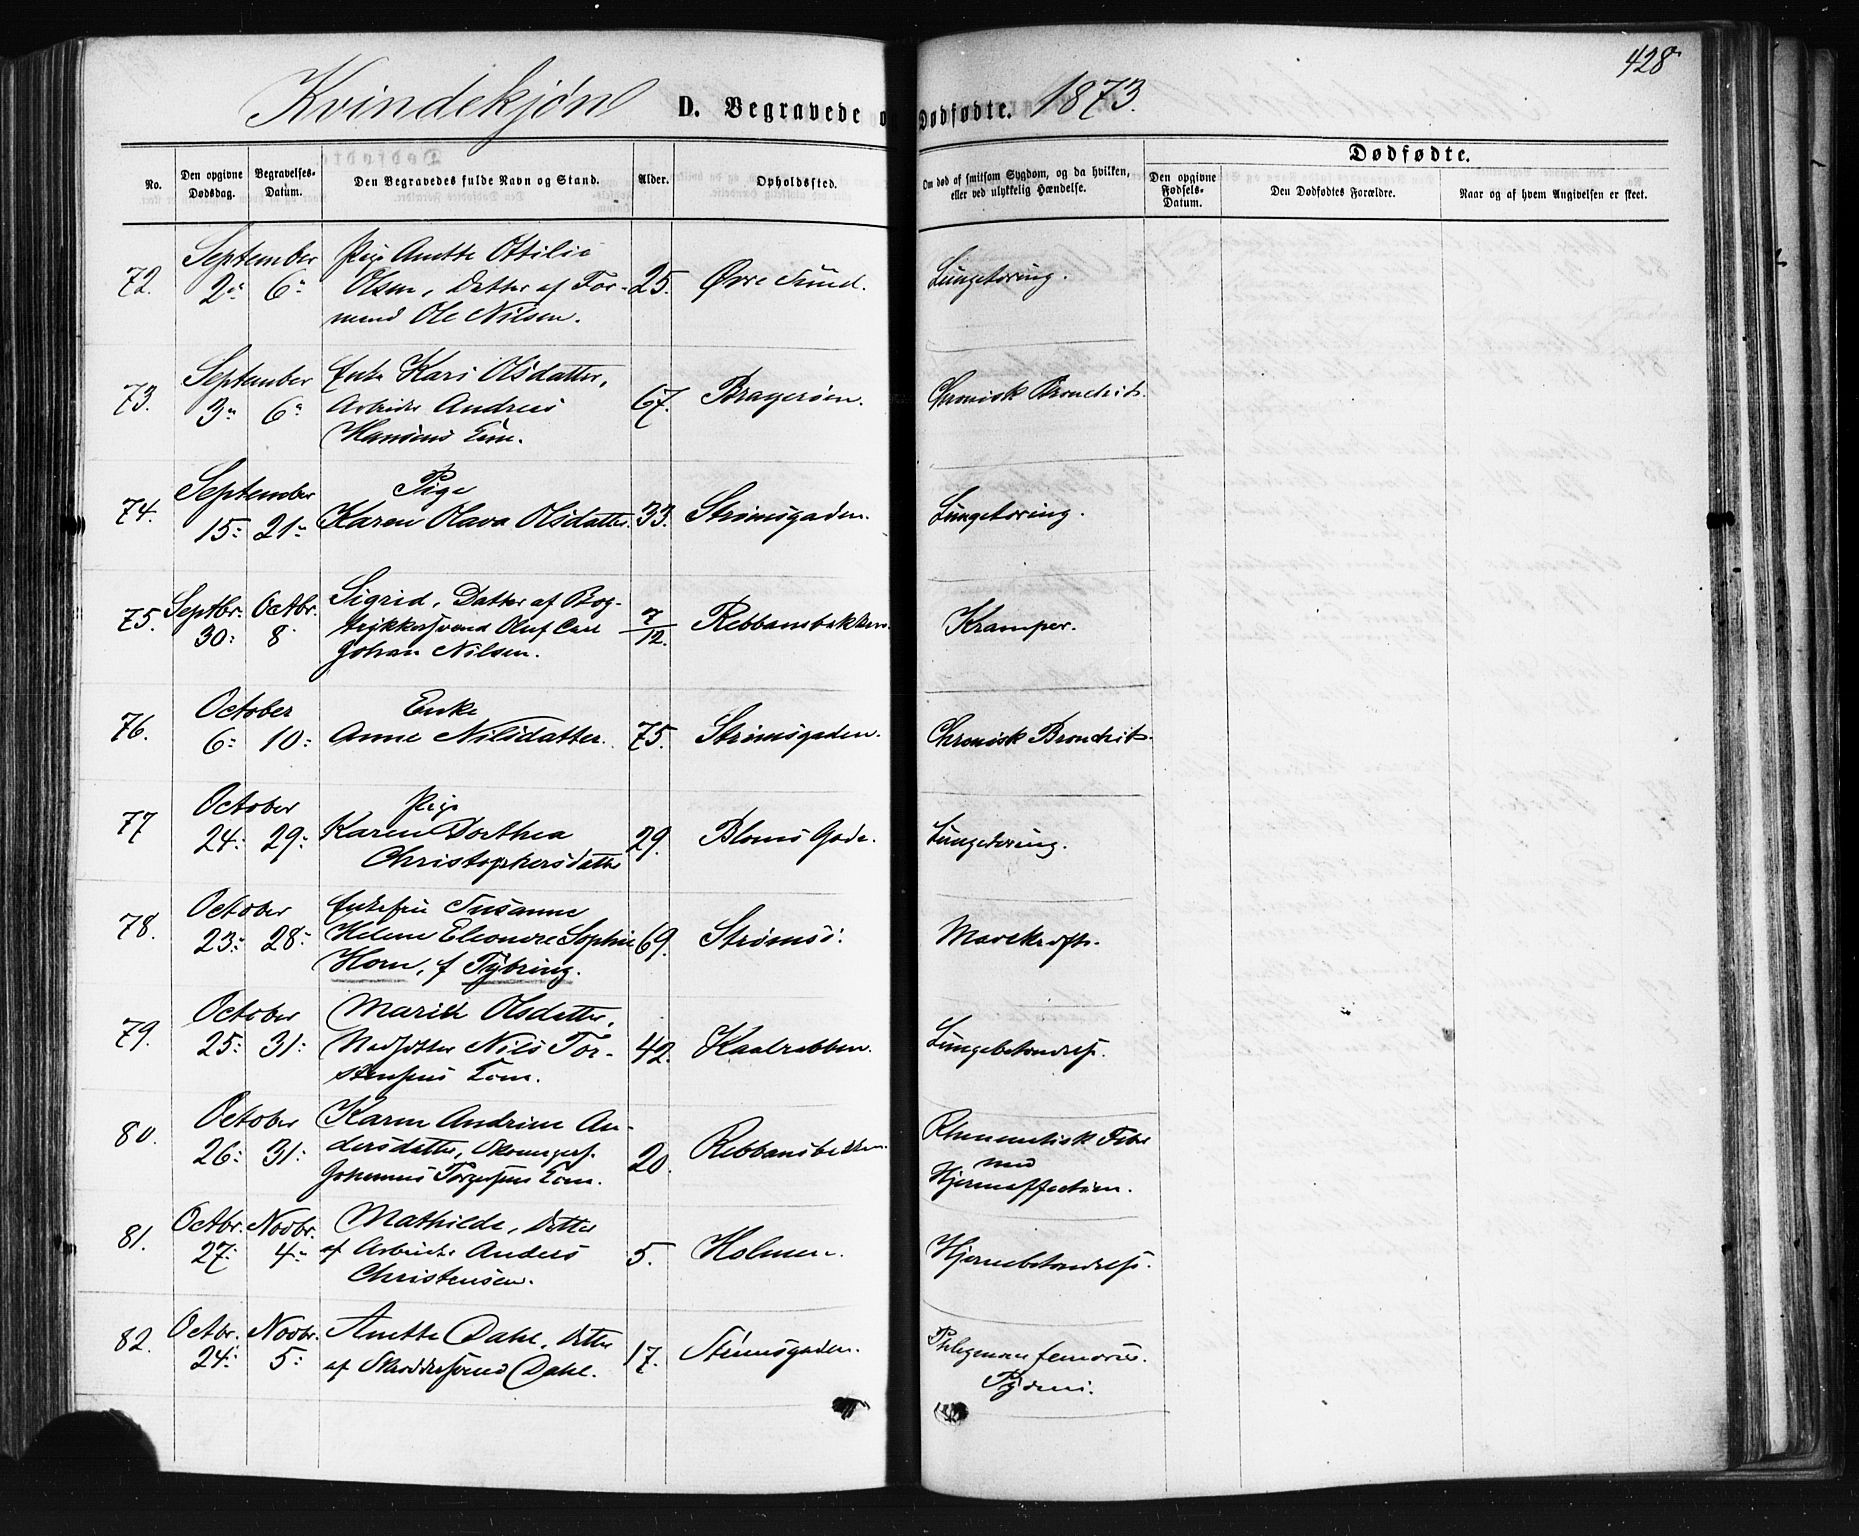 428
Kvindekjøn D. Begravede o Dødfødte. 1873.
No.
Den opgivne Dødsdag.
Begravelses-Datum.
Den Begravedes fulde Navn og Stand.
Alder.
Opholdssted.
Om død af smitsom Sygdom, og da hvilken, eller ved ulykkelig Hændelse.
Dødfødte.
Den opgivne Fødsels-Datum.
Den Dødfødtes Forældre.
Naar og af hvem Angivelsen er skeet.
September Pige Anette Ottilie
72. 2 6 Olsen, Datter af For- 25. Øvre Sund. Lungetæring.
mand Ole Nilsen.
September Enke Kari Olsdatter,
73. 3 6 Arbeider Andreas 67. Bragerøen. Chronisk Bronchit.
Hansens Enke.
September Pige
74. 15 21 Karen Olava Olsdatter. 33. Strømsgaden. Lungetæring.
Septbr. Octbr. Sigrid, Datter af Bog-
75. 30 8 trykkersvend Oluf Carl 7/12. Rebbansbakken. Kramper.
Johan Nilsen.
October Enke
76. 6 10 Anne Nilsdatter. 75. Strømsgaden. Chronisk Bronchit.
October Pige
77 24 29 Karen Dorthea 29. Bloms Gade. Lungetæring.
Christophersdatter
October Enkefru Susanne
78. 23 28 Helene Eleonore Sophie 69. Strømsø. Mavekræft.
Horn, f Tybring.
October Marie Olsdatter,
79. 25 31 Nils Tor- 42. Kaalrabben. Lungebetændelse.
stensens
October Karen Andrine An-
80. 26 31 dersdatter, 20. Rebbansbakken. Rheumatisk Feber
Johannes Torgersens med
Hjerteaffection.
Octbr. Novbr. Mathilde, Datter
81. 27 4 af Arbeider Anders 5. Holmen. Hjernebetændelse.
Christensen.
Octbr. Novbr. Anette Dahl, Datter
82. 24 5 af Skræddersvend Dahl. 17. Strømsgaden. Phlegmone femoris.
Pyæmi.